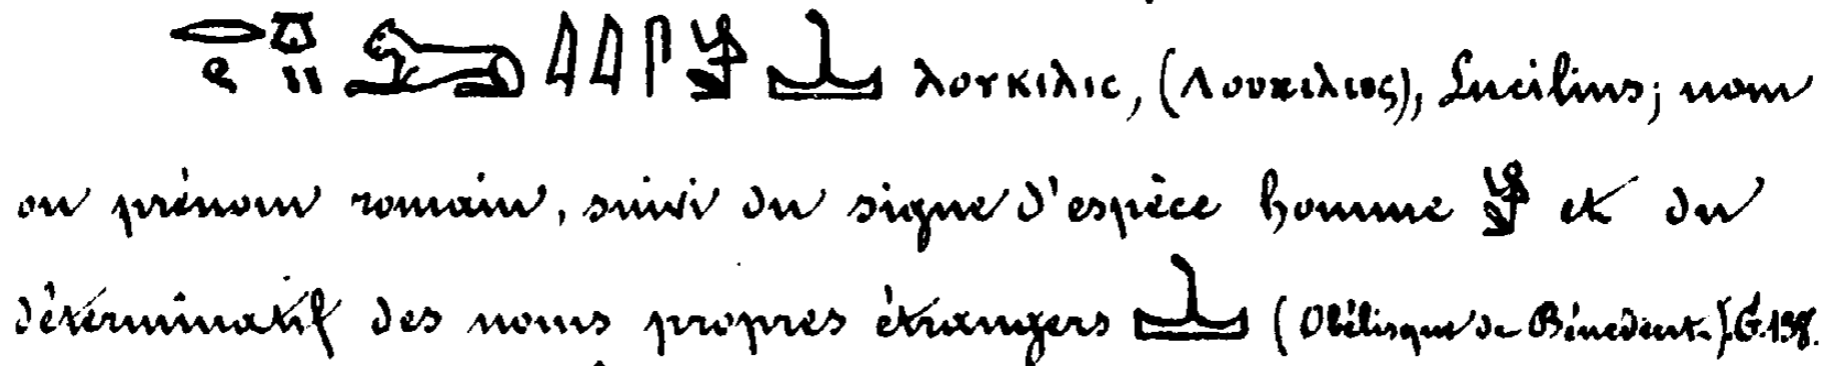 𓂋𓏲𓎼𓏭𓃭𓇋𓇋𓋴𓀀𓌙 ⲗⲟⲩⲕⲓⲗⲓⲥ, (Λουκιλιος), Lucilius; nom
ou prénom romain, suivi du signe d'espèce homme 𓀀 et du
déterminatif des noms propres étrangers 𓌙 (Obélisque de Bénévent.) G. 138.